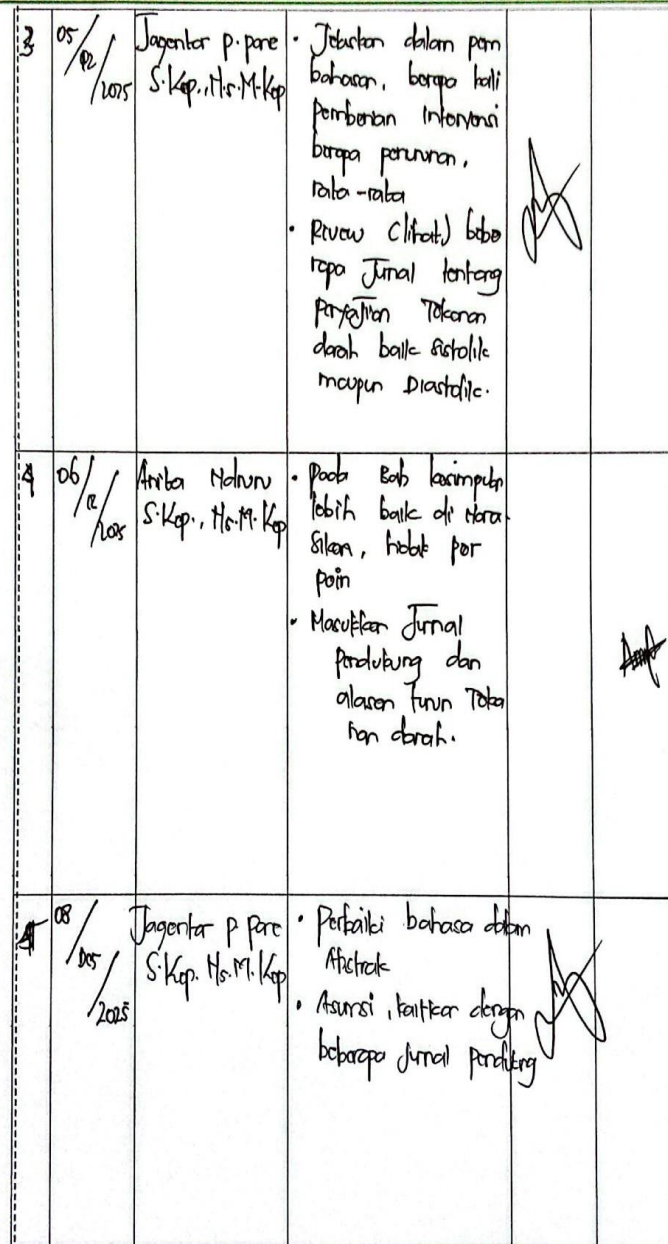 3
05/12/2025
Jagentar p. pare
S.Kep.,Ns.M.Kep
• Jelaskan dalam pem
bahasan, berapa kali
pemberian Intervensi
berapa penurunan,
rata-rata
• Review (lihat) bebe
rapa Jurnal tentang
penyajian Tekanan
darah baik sistolik
maupun Diastolik.
4
06/12/2025
Anita
S.Kep., Ns.M.Kep
• pada Bab kesimpulan
lebih baik di Nara
sikan, tidak per
poin
• Masukkan Jurnal
Pendukung dan
alasan turun Teka
nan darah.
08/Des/2025
Jagentar p pare
S.Kep. Ns.M.Kep
• Perbaiki bahasa dalam
Abstrak
• Asumsi, kaitkan dengan
beberapa Jurnal pendukung